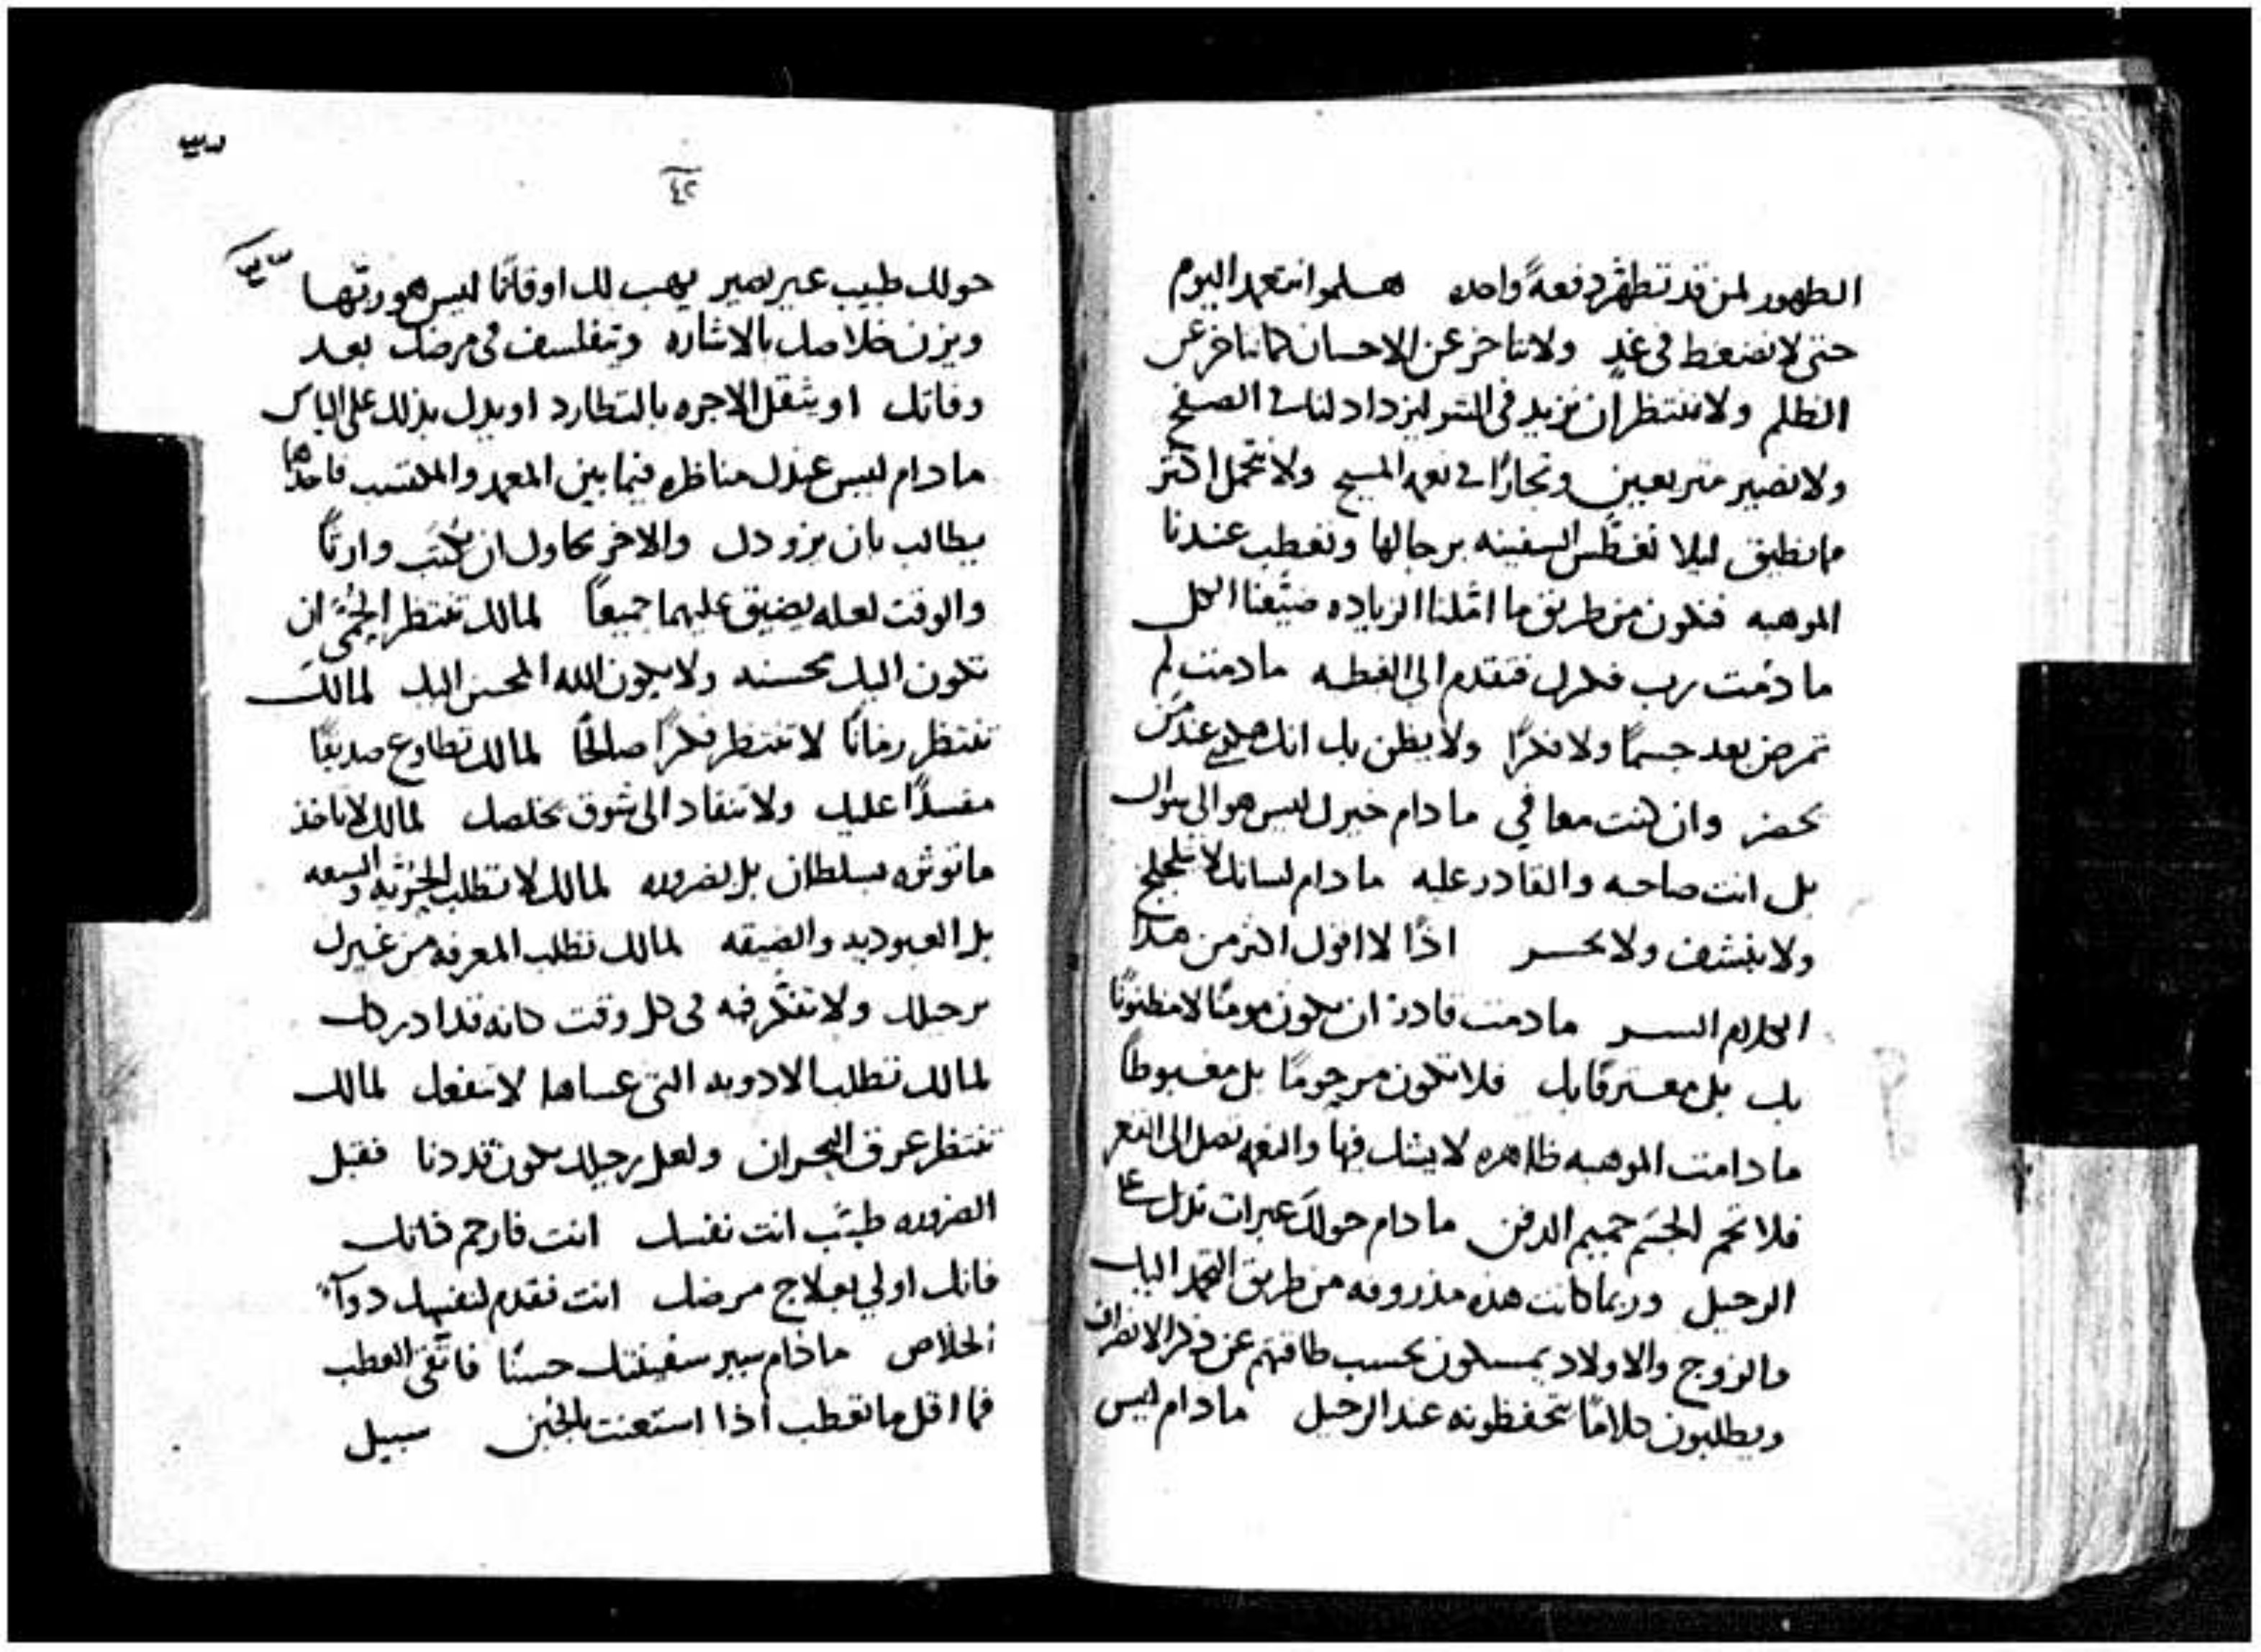 الطهور لمن قد تطهر دفعةً واحده هلموا نتعمد اليوم
حتى لا نضغط فى غدٍ ولا نتاخر عن الاحسان كما نتاخر عن
الظلم ولا ننتظر ان نزيد فى الشر ليزداد لنا الصفح
ولا نصير متربعين وتجارًا نعمه المسيح ولا نتحمل اكثر
مما نطيق ليلا تغطس السفينه برجالها ونعطب عندنا
الموهبه فنكون من طريق ما املنا الزياده ضيّعنا الكل
ما دُمت رب فكرك فتقدم الى العطيه ما دمت لم
تمرض بعد جسمًا ولا فكرًا ولا يظن بك انك عند من
يحضر وان كنت معافي ما دام خيرك ليس هو الى سواك
بل انت صاحبه والقادر عليه ما دام لسانك لا يلجلج
ولا ينشف ولا يخسر اذًا لا اقول اكثر من هذا
الكلام السر ما دمت قادرًا ان تكون مومنًا لا مظنونًا
بك بل معترفًا بك فلا تكون مرحومًا بل مغبوطًا
ما دامت الموهبه ظاهره لا يشك فيها والنعمه تصل الى القعر
فلا تحم الجسم حميم الدفن ما دام حولك عبرات تدل على
الرحيل وربما كانت هذه مذروفه من طريق التحمد اليك
والزوج والاولاد يمسكون بحسب طاقتهم عن ذكر الانصراف
ويطلبون كلامًا يتحفظونه عند الرحيل ما دام ليس
٤٢
حولك طبيب غير بصير يهب لك اوقاتًا ليس هو ربّها
ويزن خلاصك بالاشاره ويتفلسف فى مرضك بعد
وفاتك او يثقل الاجره بالتطارد او يدل بذلك على الياس
ما دام ليس عندك مناظره فيما بين المعمد والمكتسب فاحدهما
يطالب بان يزودك والاخر يحاول ان يكتب وارثًا
والوقت لعله يضيق عليهما جميعًا لما لك تنتظر الحُمّى ان
تكون اليك محسنه ولا يكون الله المحسن اليك لما لك
تنتظر زمانًا لا تنتظر فكرًا صالحًا لما لك تطاوع صديقًا
مفسدًا عليك ولا تنقاد الى شوق يخلصك لما لك لا تاخذ
ما توثره بسلطان بل بضروره لما لك لا تطلب الحرّيه والسعه
بل العبوديه والضيقه لما لك تطلب المعرفه من غيرك
برحيلك ولا تفتكر فيه فى كل وقت كانه قد ادركك
لما لك تطلب الادويه التى عساها لا تنفعل لما لك
تنتظر عرق البحران ولعل رحيلك يكون قد دنا فقبل
الضروره طبّب انت نفسك انت فارحم ذاتك
فانك اولي بعلاج مرضك انت فقدم لنفسك دوآء
الخلاص ما دام سير سفينتك حسنًا فاتّقى العطب
فما اقل ما تعطب اذا استعنت بالجُبن سبيل